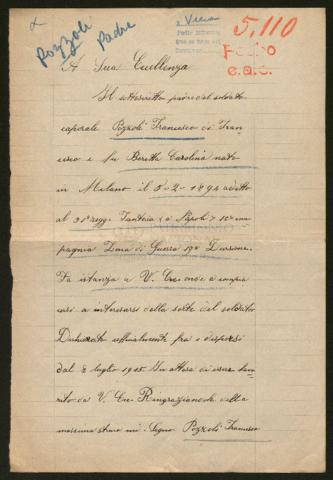 Pozzoli Padre
5.110
A Sua Eccellenza
Il sottoscritto padre del soldato
caporale Pozzoli Francesco di Fran
cesco e fu Beretta Carolina nato
in Milano il 5-2-1894 addetto
al 31º regg. Fanteria a Napoli 10ª com
pagnia Zona di Guerra 19ª Divisione
Fa istanza a V. Ecc. onde a compia
cersi a interessarsi della sorte del soldato
Dichiarato ufficialmente fra i dispersi
dal 2 luglio 1915. In attesa di essere
da V. Ecc. Ringraziandola della
mi Segno Pozzoli Francesco